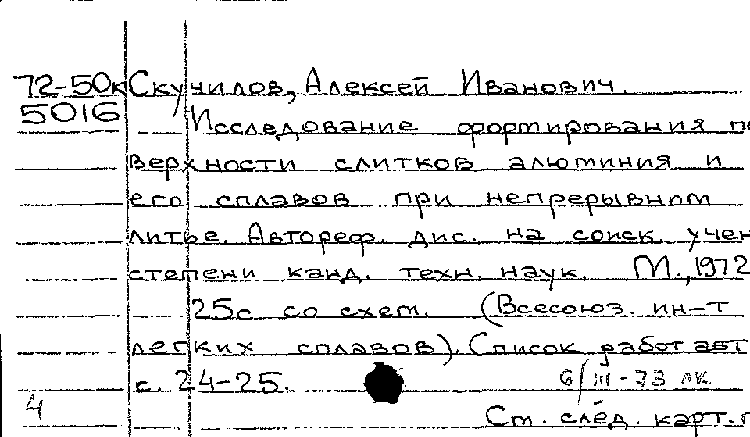 72-50к Скучилов, Алексей Иванович.
5016 Исследование формирования по
верхности слитков алюминия и
его сплавов при непрерывном
литье. Автореф. дис. на соиск. учен
степени канд. техн. наук. М., 1972
25с со схем. (Всесоюз. ин-т
легких сплавов). Список работ авт
с. 24-25. 6/III-73 лк.
4 См. след. карт.